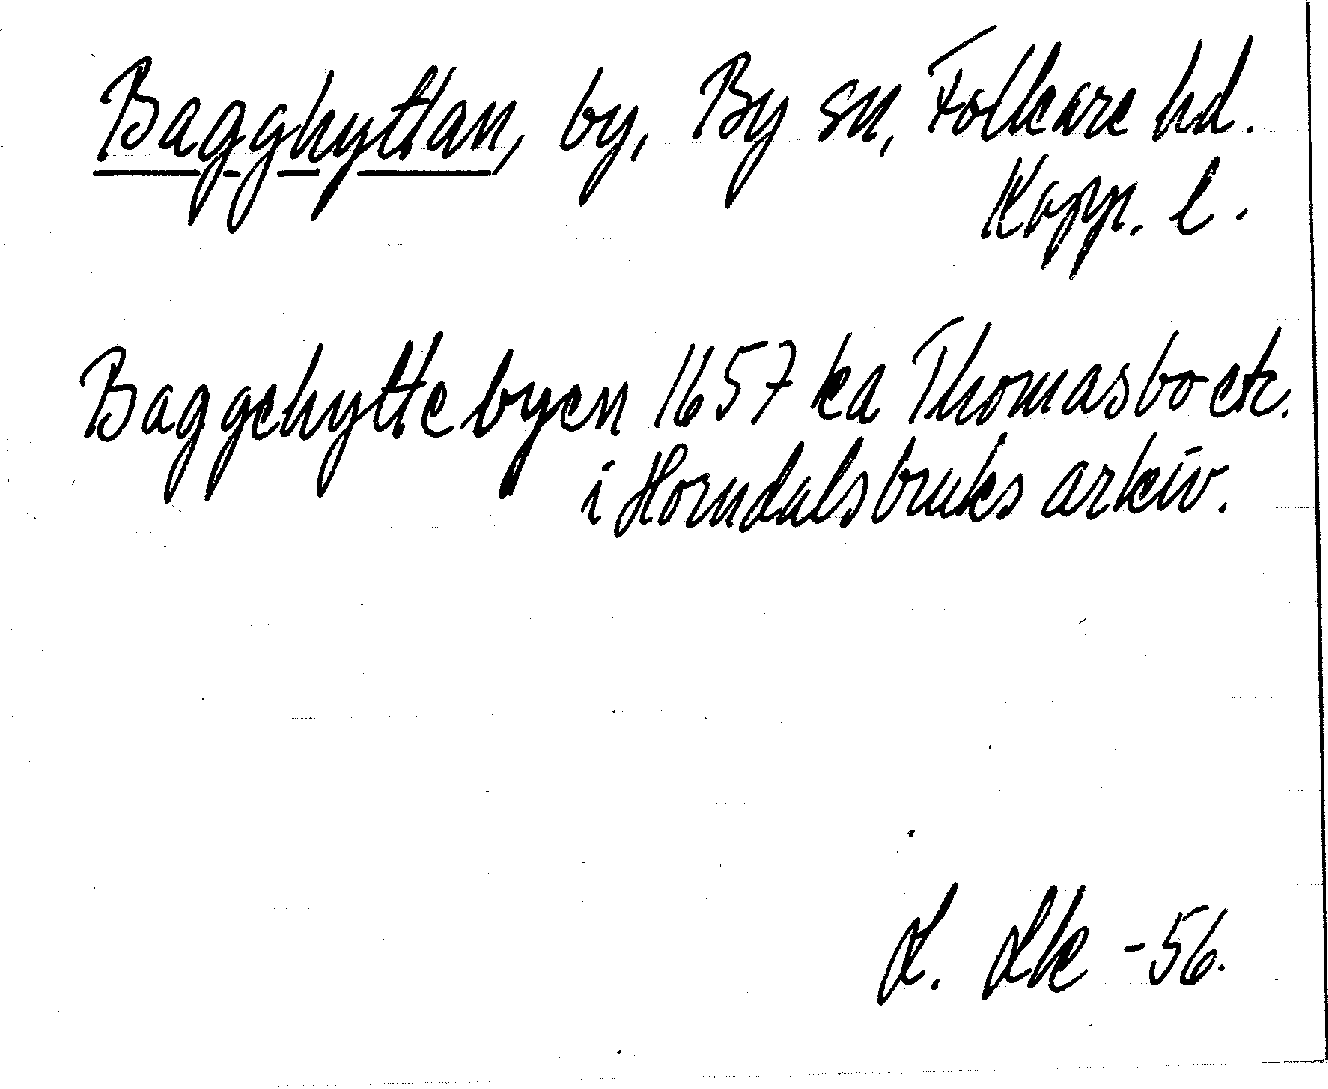 Bagghyttan, by, By sn, Folkare hd.
Kopp. l.
Baggehyttebyen 1657 ka Thomasbo etc.
i Horndalsbruks arkiv.
-56.